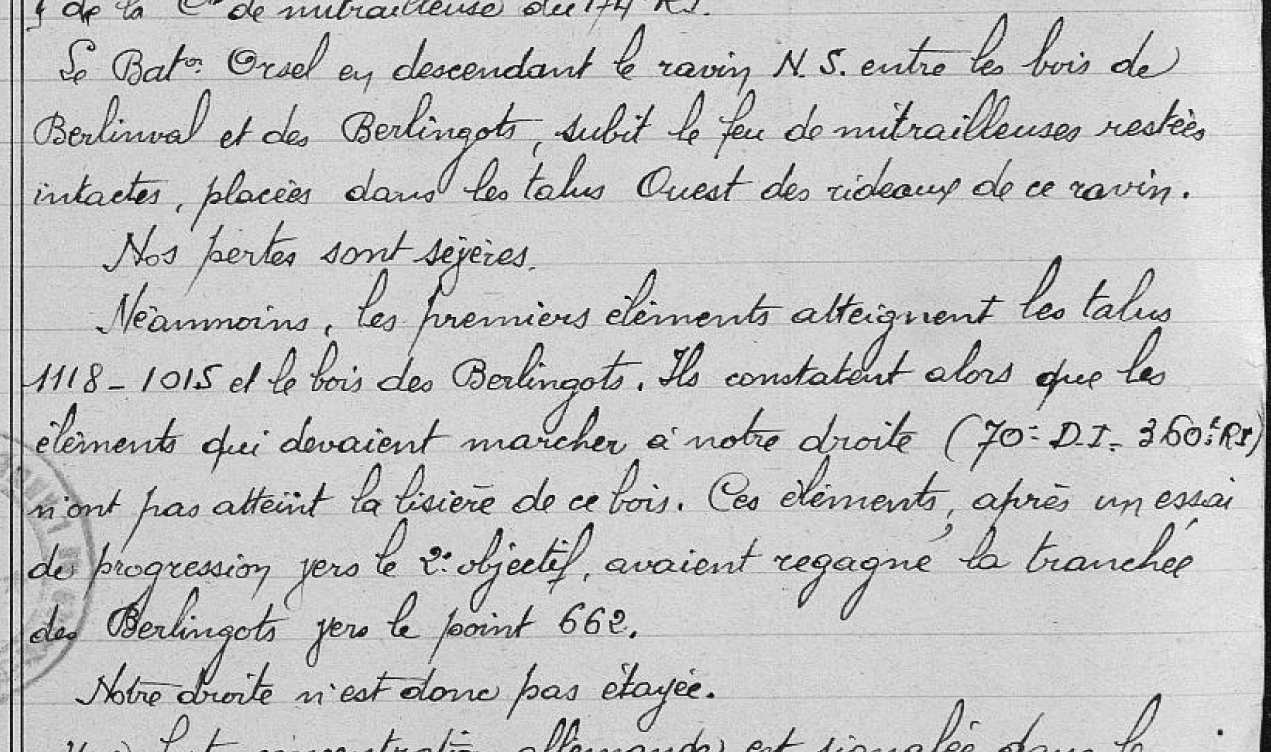 de la Cie de mitrailleuse du 174 RI.
Le Baton. Orsel en descendant le ravin N. S. entre les bois de
Berlinval et des Berlingots, subit le feu de mitrailleuses restées
intactes, placées dans les talus Ouest des rideaux de ce ravin.
Nos pertes sont sévères.
Néanmoins, les premiers éléments atteignent les talus
1118 - 1015 et le bois des Berlingots. Ils constatent alors que les
éléments qui devaient marcher à notre droite (70e D.I. 360e RI)
n'ont pas atteint la lisière de ce bois. Ces éléments, après un essai
de progression vers le 2e objectif, avaient regagné la tranchée
des Berlingots vers le point 662.
Notre droite n'est donc pas étayée.
concentration allemande est signalée dans le